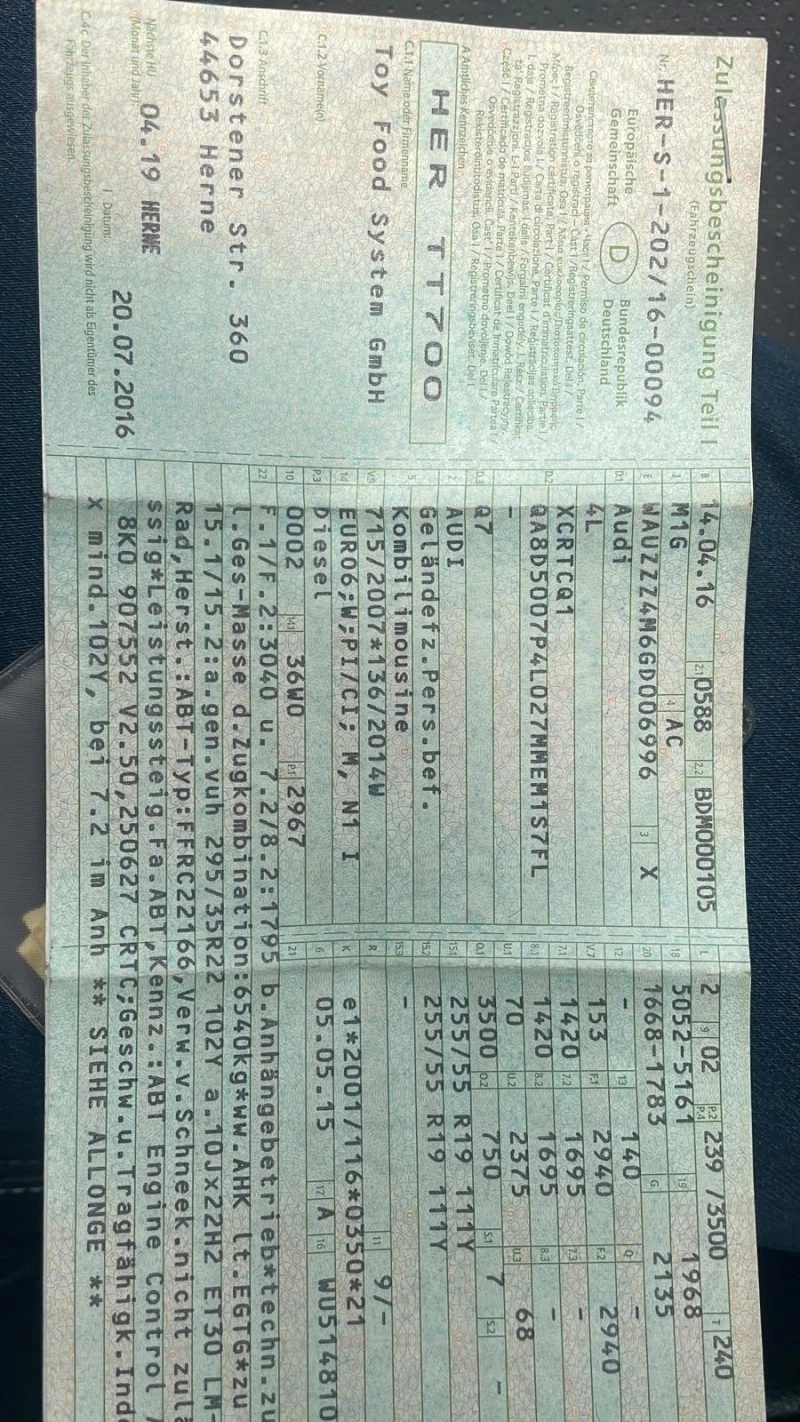 Zulassungsbescheinigung Teil I
(Fahrzeugschein)
Nr. HER-S-1-202/16-00094
Europäische Gemeinschaft
D
Bundesrepublik Deutschland
A Amtliches Kennzeichen
HER TT700
C.1.1 Name oder Firmenname
Toy Food System GmbH
C.1.2 Vorname(n)
C.1.3 Anschrift
Dorstener Str. 360
44653 Herne
Nächste HU
(Monat und Jahr)
04.19 HERNE
I Datum:
20.07.2016
C.4c Der Inhaber der Zulassungsbescheinigung wird nicht als Eigentümer des
Fahrzeugs ausgewiesen.
B 14.04.16 2.1 0588 2.2 BDM000105
J M1G 4 AC
E WAUZZZ4M6GD006996 3 X
D.1 Audi
4L
D.2 XCRTCQ1
QA8D5007P4L027MMEM1S7FL
-
D.3 Q7
2 AUDI
Geländefz.Pers.bef.
5 Kombilimousine
V.9 715/2007*136/2014W
14 EURO6;W;PI/CI; M, N1 I
P.3 Diesel
10 0002 14.1 36W0 P.1 2967
22 F.1/F.2:3040 u. 7.2/8.2:1795 b.Anhängebetrieb*techn.zu
l.Ges-Masse d.Zugkombination:6540kg*ww.AHK lt.EGTG*zu
15.1/15.2:a.gen.vuh 295/35R22 102Y a.10Jx22H2 ET30 LM-
Rad,Herst.:ABT-Typ:FFRC22166,Verw.v.Schneek.nicht zulä
ssig*Leistungssteig.Fa.ABT,Kennz.:ABT Engine Control /
8K0 907552 V2.50,250627 CRTC;Geschw.u.Tragfähigk.Ind
x mind.102Y, bei 7.2 im Anh ** SIEHE ALLONGE **
L 2 9 02 P.2 P.4 239 /3500 T 240
18 5052-5161 19 1968
20 1668-1783 G 2135
12 - 13 140 Q -
V.7 153 F.1 2940 F.2 2940
7.1 1420 7.2 1695 7.3 -
8.1 1420 8.2 1695 8.3 -
U.1 70 U.2 2375 U.3 68
O.1 3500 O.2 750 S.1 7 S.2 -
15.1 255/55 R19 111Y
15.2 255/55 R19 111Y
15.3 -
R 11 9/-
K e1*2001/116*0350*21
6 05.05.15 17 A 16 WU514810
21